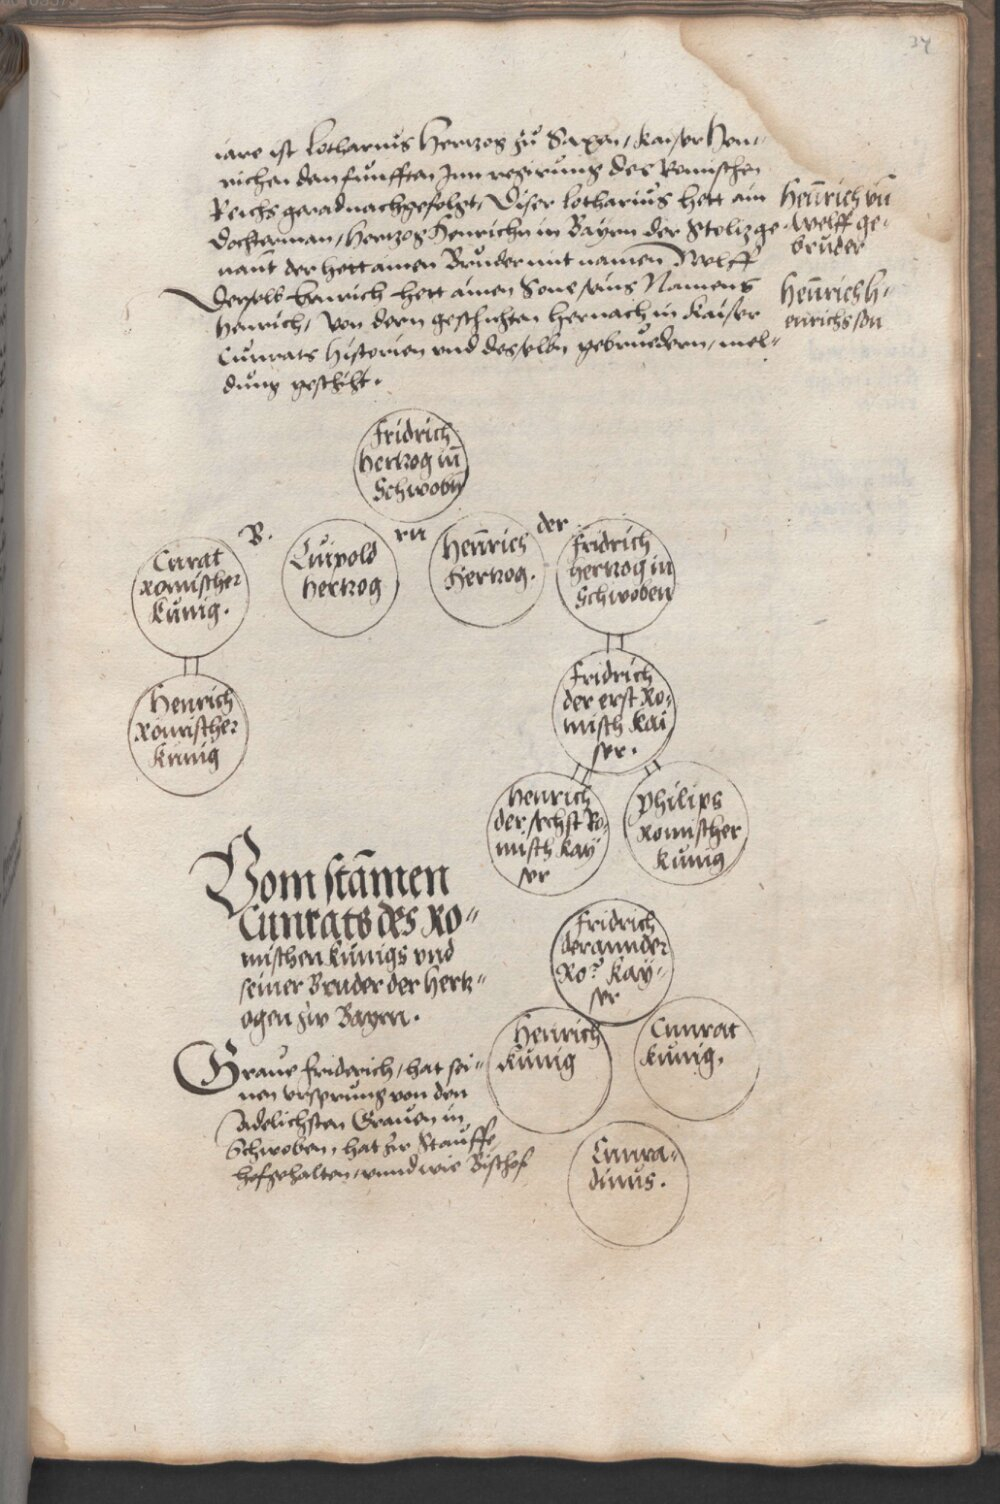 37
iare ist Lotharius Hertzog zů Saxen, Kaiser Hen-
richen dem funfften Jnn regirung des Romischen
Reichs gerad nachgefolgt, Diser Lotharius hett ain
Dochterman, Hertzog Henrichn in Bayrn der Stoltz ge-
nant der hett ainen Bruder mit namen Welff
Derselb Henrich hett ainen Sone seins Namens
Henrich, Von dem geschichten hernach in Kaiser
Cůnrats Historien vnd desselbn gebruedern, mel-
dung geschiht.
Henrich vn̄
Welff ge-
brůder
Henrich h-
enrichs son
Fridrich
hertzog in
Schwobn
B. ru der
Cunrat
Romischer
Kunig.
Luipold
hertzog
Henrich
Hertzog.
Fridrich
hertzog in
Schwoben
Henrich
Romischer
Kunig
Fridrich
der erst Ro-
misch Kai
ser.
Henrich
der sechst Ro-
misch Kay
ser
Philips
Romischer
Kunig
Vom stam̄en
Cunrats des Ro-
mischen Kunigs vnd
seiner Bruder der Hertz-
ogen zw Bayrn.
Fridrich
der annder
Ro. Kay-
ser
Henrich
Kunig
Cunrat
Kunig.
Graue Friderich, hat sei-
nen vrsprung von den
Adelichsten Grauen in
Schwoben, hat zw Stauffe
hofgehalten, vnnd wie Bischof
Cunra-
dinus.